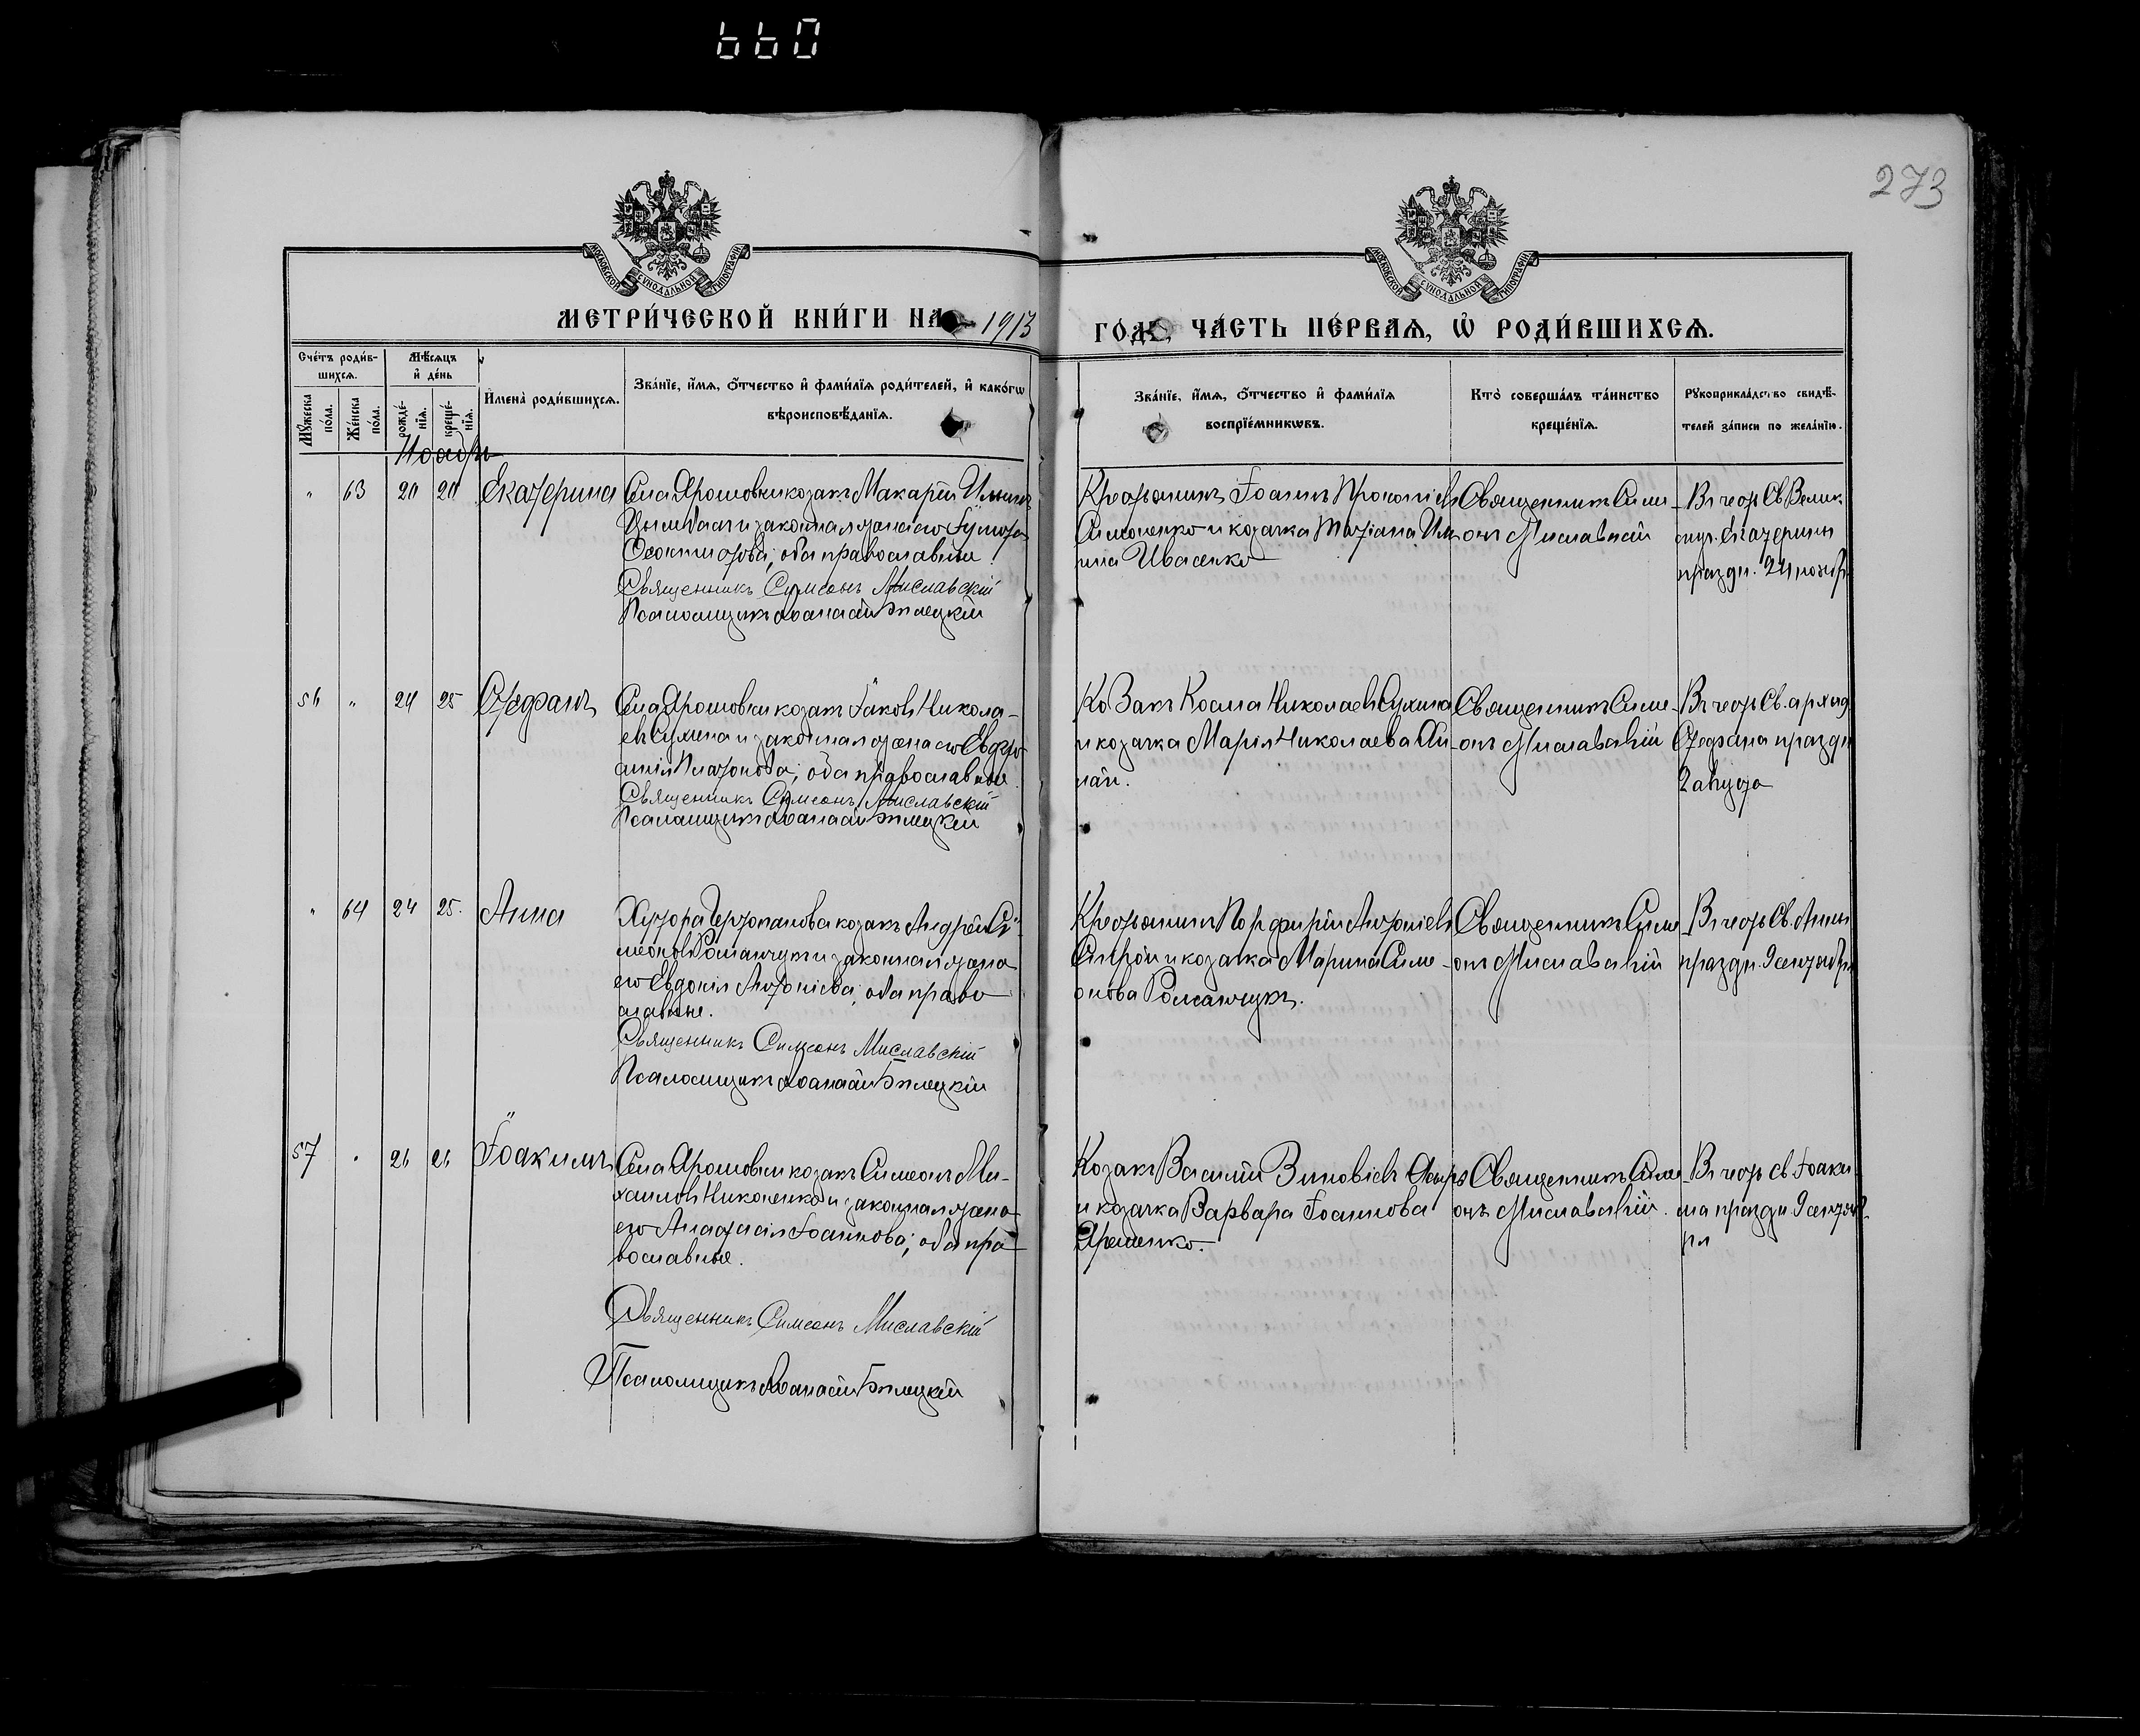 660
273
МОСКОВСКОЙ СѴНОДАЛЬНОЙ ТИПОГРАФІИ
МОСКОВСКОЙ СѴНОДАЛЬНОЙ ТИПОГРАФІИ
МЕТРИ́ЧЕСКОЙ КНИ́ГИ НА 1913
ГО́ДЪ, ЧА́СТЬ ПЕ́РВАѦ, Ѡ҆ РОДИ́ВШИХСѦ.
Сче́тъ роди́вшихсѧ.
Мѣ́сѧцъ и҆ де́нь
Мꙋ́жеска по́ла.
Же́нска по́ла.
рожде́нїѧ.
креще́нїѧ.
И҆мена̀ роди́вшихсѧ.
Зва́нїе, и҆́мѧ, ѻ҆́тчество и҆ фами́лїѧ роди́телей, и҆ како́гѡ
вѣроисповѣ́данїѧ.
Зва́нїе, и҆́мѧ, ѻ҆́тчество и҆ фами́лїѧ
воспрїе́мникѡвъ.
Кто̀ соверша́лъ та́инство
креще́нїѧ.
Рꙋкоприкла́дство свидѣ́-
телей за́писи по жела́нїю.
Ноябрь
" 63 20 20 Екатерина
Села Ярошовки козакъ Макарій Ильинъ
и законная жена его
оба православные.
Священникъ Симеонъ Миславскій
Псаломщикъ Аѳанасій Білецкій
Крестьянинъ Іоаннъ Прокопіевъ
Симоненко и козачка Татіана Иль-
ина Ивасенко
Священникъ Симе-
онъ Миславскій
Въ честь Св. Велик
муч. Екатерины
праздн. 24 ноябр
56 " 24 25 Стефанъ
Села Ярошовки козакъ Іаковъ Никола-
евъ Сухина и законная жена его Евдо-
Платонова; оба православные.
Священникъ Симеонъ Миславскій
Псаломщикъ Аѳанасій Білецкій
Козакъ Косма Николаевъ Сухина
и козачка Марія Николаева
Священникъ Симе-
онъ Миславскій
Въ честь Св. архид
Стефана праздн
2 августа
" 64 24 25. Анна
Хутора козакъ Андрей Си-
меоновъ Романчукъ и законная жена
его Евдокія Антоніева; оба право-
славные.
Священникъ Симеонъ Миславскій
Псаломщикъ Аѳанасій Білецкій
Крестьянинъ Порфирій Антоніевъ
и козачка Марина Симе-
онова Романчукъ.
Священникъ Симе-
онъ Миславскій
Въ честь Св. Анны
праздн. 9 сентября
57 " 26 26 Іоакимъ
Села Ярошовки козакъ Симеонъ Ми-
хаиловъ Николенко и законная жена
его Анастасія Іоаннова; оба пра-
вославные.
Священникъ Симеонъ Миславскій
Псаломщикъ Аѳанасій Білецкій
Козакъ Василій Зиновіевъ
и козачка Варвара Іоаннова
Яременко.
Священникъ Симе-
онъ Миславскій.
Въ честь св Іоаки-
ма праздн 9 сентяб-
ря